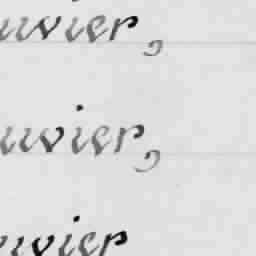 uvier,
uvier,
uvier